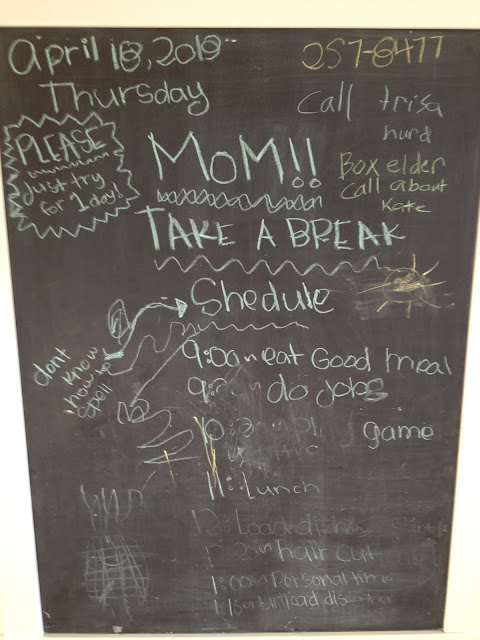 April 18, 2019
Thursday
257-8477
call trisa
hurd
Box elder
call about
Kate
PLEASE
Just try
for 1 day!
MoM!!
TAKE A BREAK
Shedule
dont
know
how to
spell
9:00 eat Good meal
9: do jobs
10: game
11: Lunch
12: Load dishes
hair cut
1:00 Personal time
unload